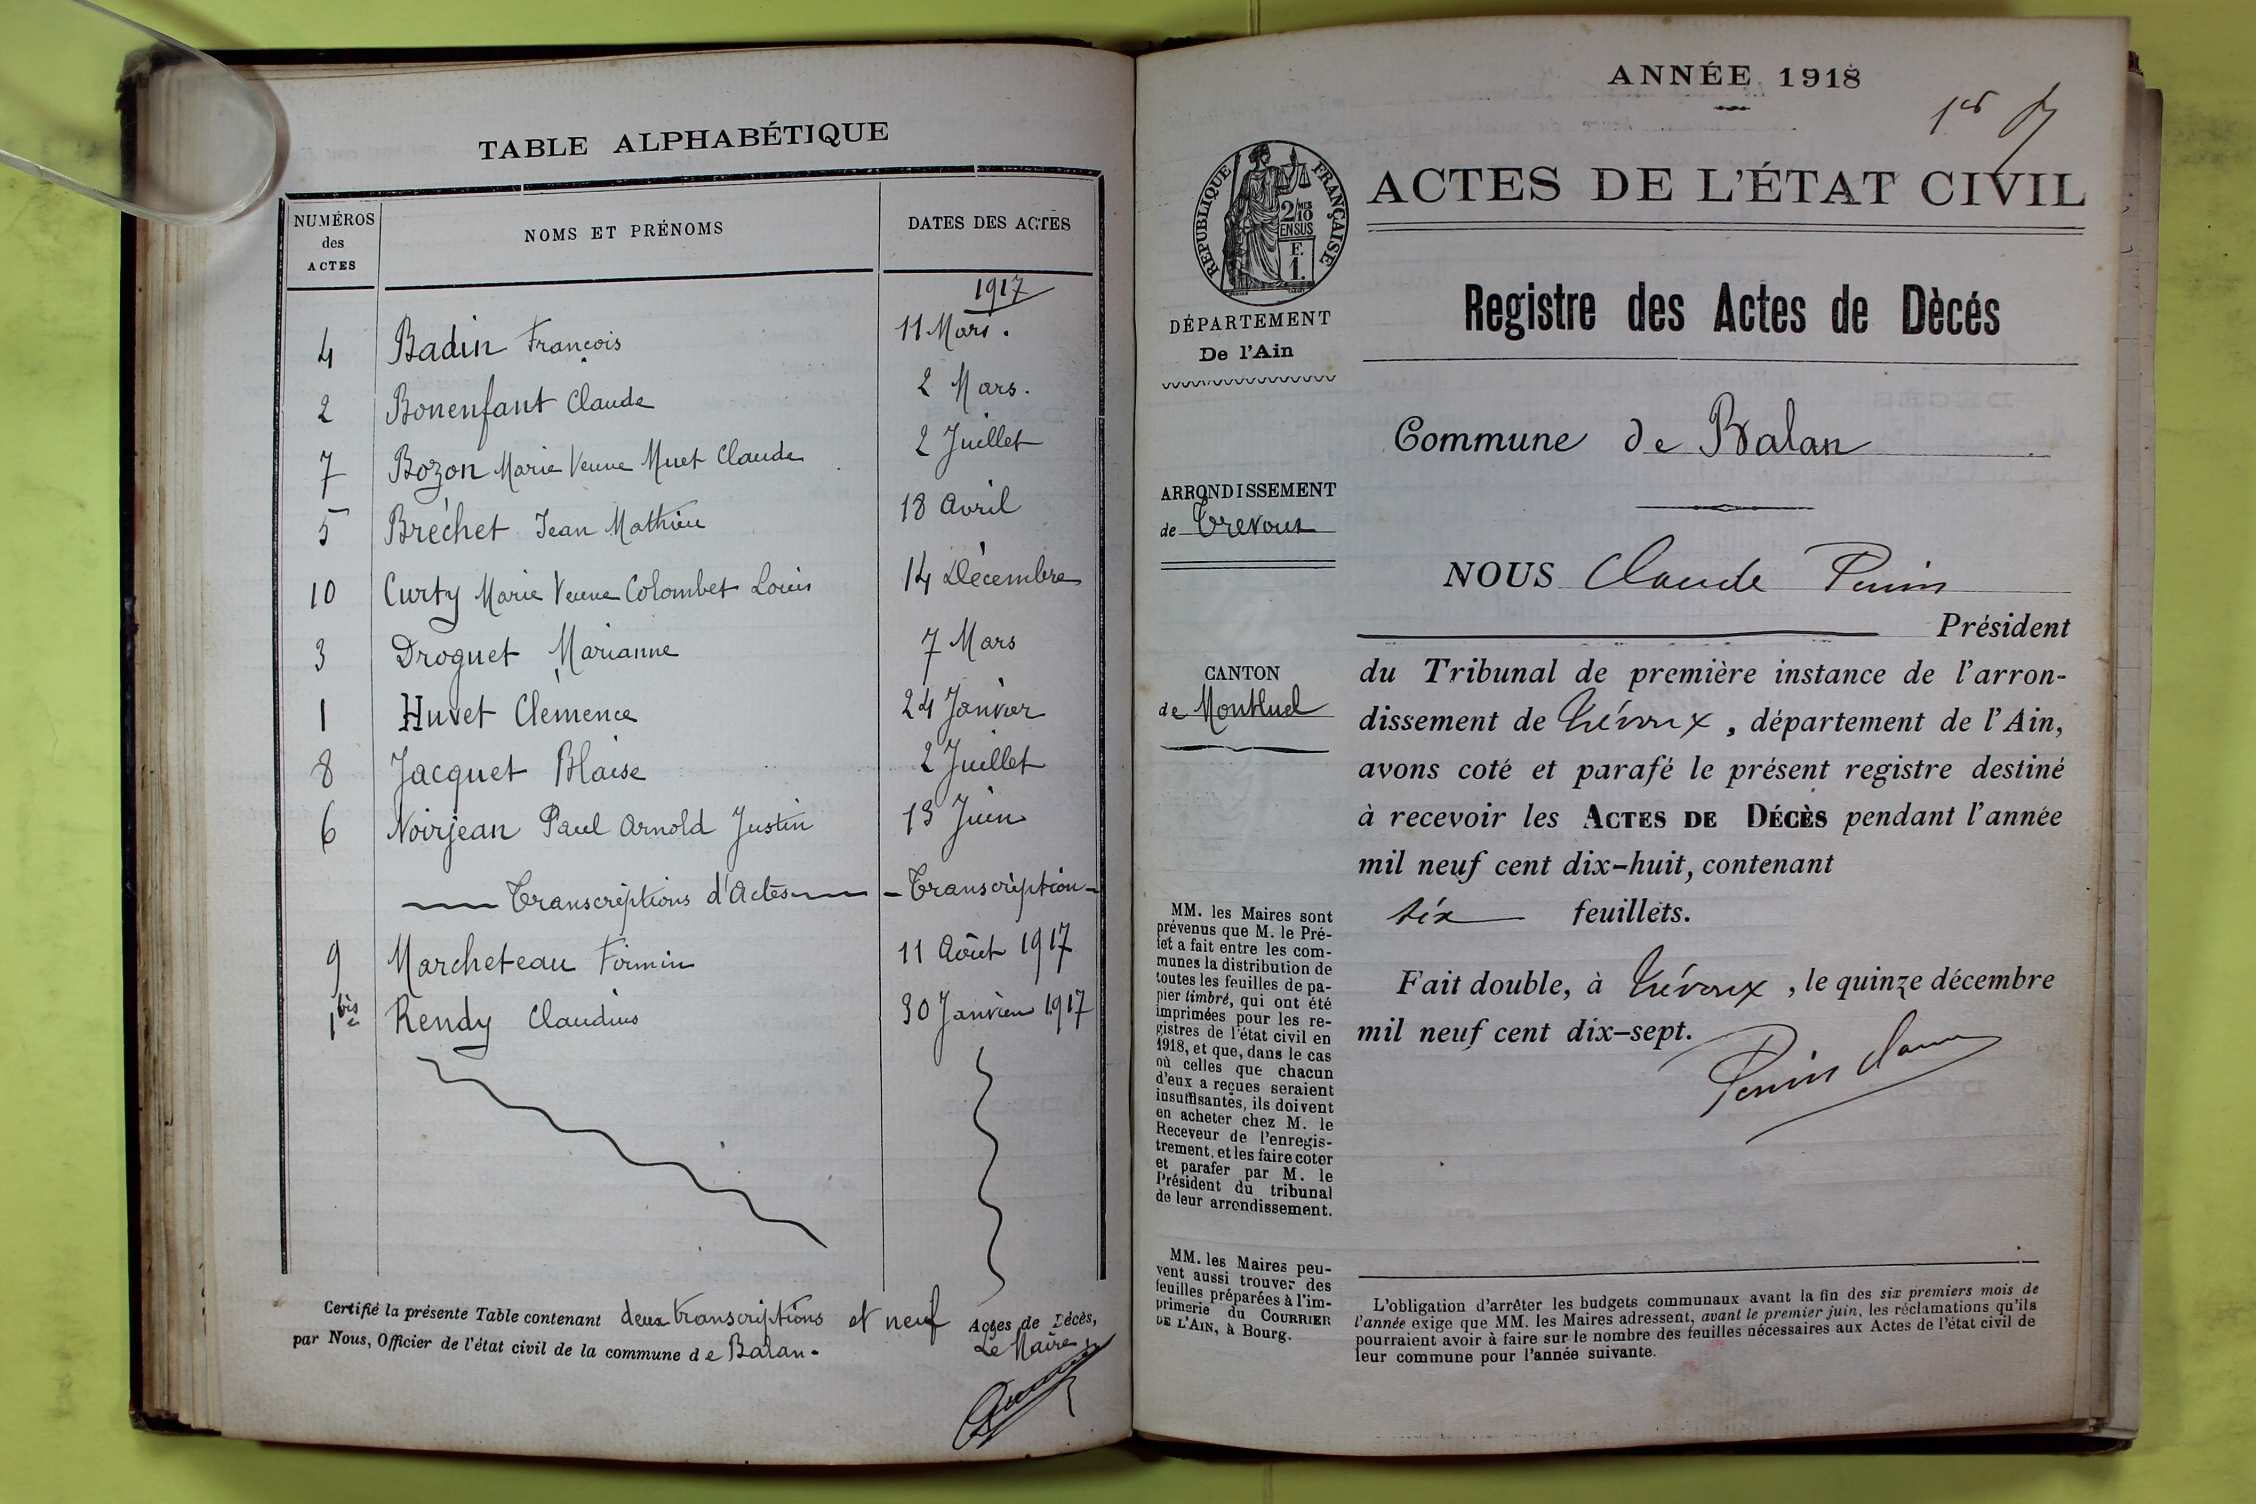 TABLE ALPHABÉTIQUE
NUMÉROS
des
ACTES
NOMS ET PRÉNOMS
DATES DES ACTES
1917
4 Badin François 11 Mars.
2 Bonenfant Claude 2 Mars.
7 Bozon Marie Veuve Muet Claude 2 Juillet
5 Bréchet Jean Mathieu 18 Avril
10 Curty Marie Veuve Colombet Louis 14 Décembre
3 Droguet Marianne 7 Mars
1 Huvet Clémence 24 Janvier
8 Jacquet Blaise 2 Juillet
6 Noirjean Paul Arnold Justin 13 Juin
Transcriptions d'Actes - Transcription -
9 Marcheteau Firmin 11 Août 1917
1 bis Rendy Claudius 30 Janvier 1917
Certifié la présente Table contenant deux transcriptions et neuf Actes de Décès,
par Nous, Officier de l'état civil de la commune de Balan.
Le Maire
ANNÉE 1918
1er
ACTES DE L'ÉTAT CIVIL
RÉPUBLIQUE FRANÇAISE
2/10 MES
EN SUS
F.
1.
DÉPARTEMENT
De l'Ain
ARRONDISSEMENT
de Trevoux
CANTON
de Montluel
MM. les Maires sont
prévenus que M. le Pré-
fet a fait entre les com-
munes la distribution de
toutes les feuilles de pa-
pier timbré, qui ont été
imprimées pour les re-
gistres de l'état civil en
1918, et que, dans le cas
où celles que chacun
d'eux a reçues seraient
insuffisantes, ils doivent
en acheter chez M. le
Receveur de l'enregis-
trement, et les faire coter
et parafer par M. le
Président du tribunal
de leur arrondissement.
MM. les Maires peu-
vent aussi trouver des
feuilles préparées à l'im-
primerie du COURRIER
DE L'AIN, à Bourg.
Registre des Actes de Dècés
Commune de Balan
NOUS Claude Perrin
Président
du Tribunal de première instance de l'arron-
dissement de Trévoux, département de l'Ain,
avons coté et parafé le présent registre destiné
à recevoir les ACTES DE DÉCÈS pendant l'année
mil neuf cent dix-huit, contenant
six feuillets.
Fait double, à Trévoux, le quinze décembre
mil neuf cent dix-sept.
L'obligation d'arrêter les budgets communaux avant la fin des six premiers mois de
l'année exige que MM. les Maires adressent, avant le premier juin, les réclamations qu'ils
pourraient avoir à faire sur le nombre des feuilles nécessaires aux Actes de l'état civil de
leur commune pour l'année suivante.